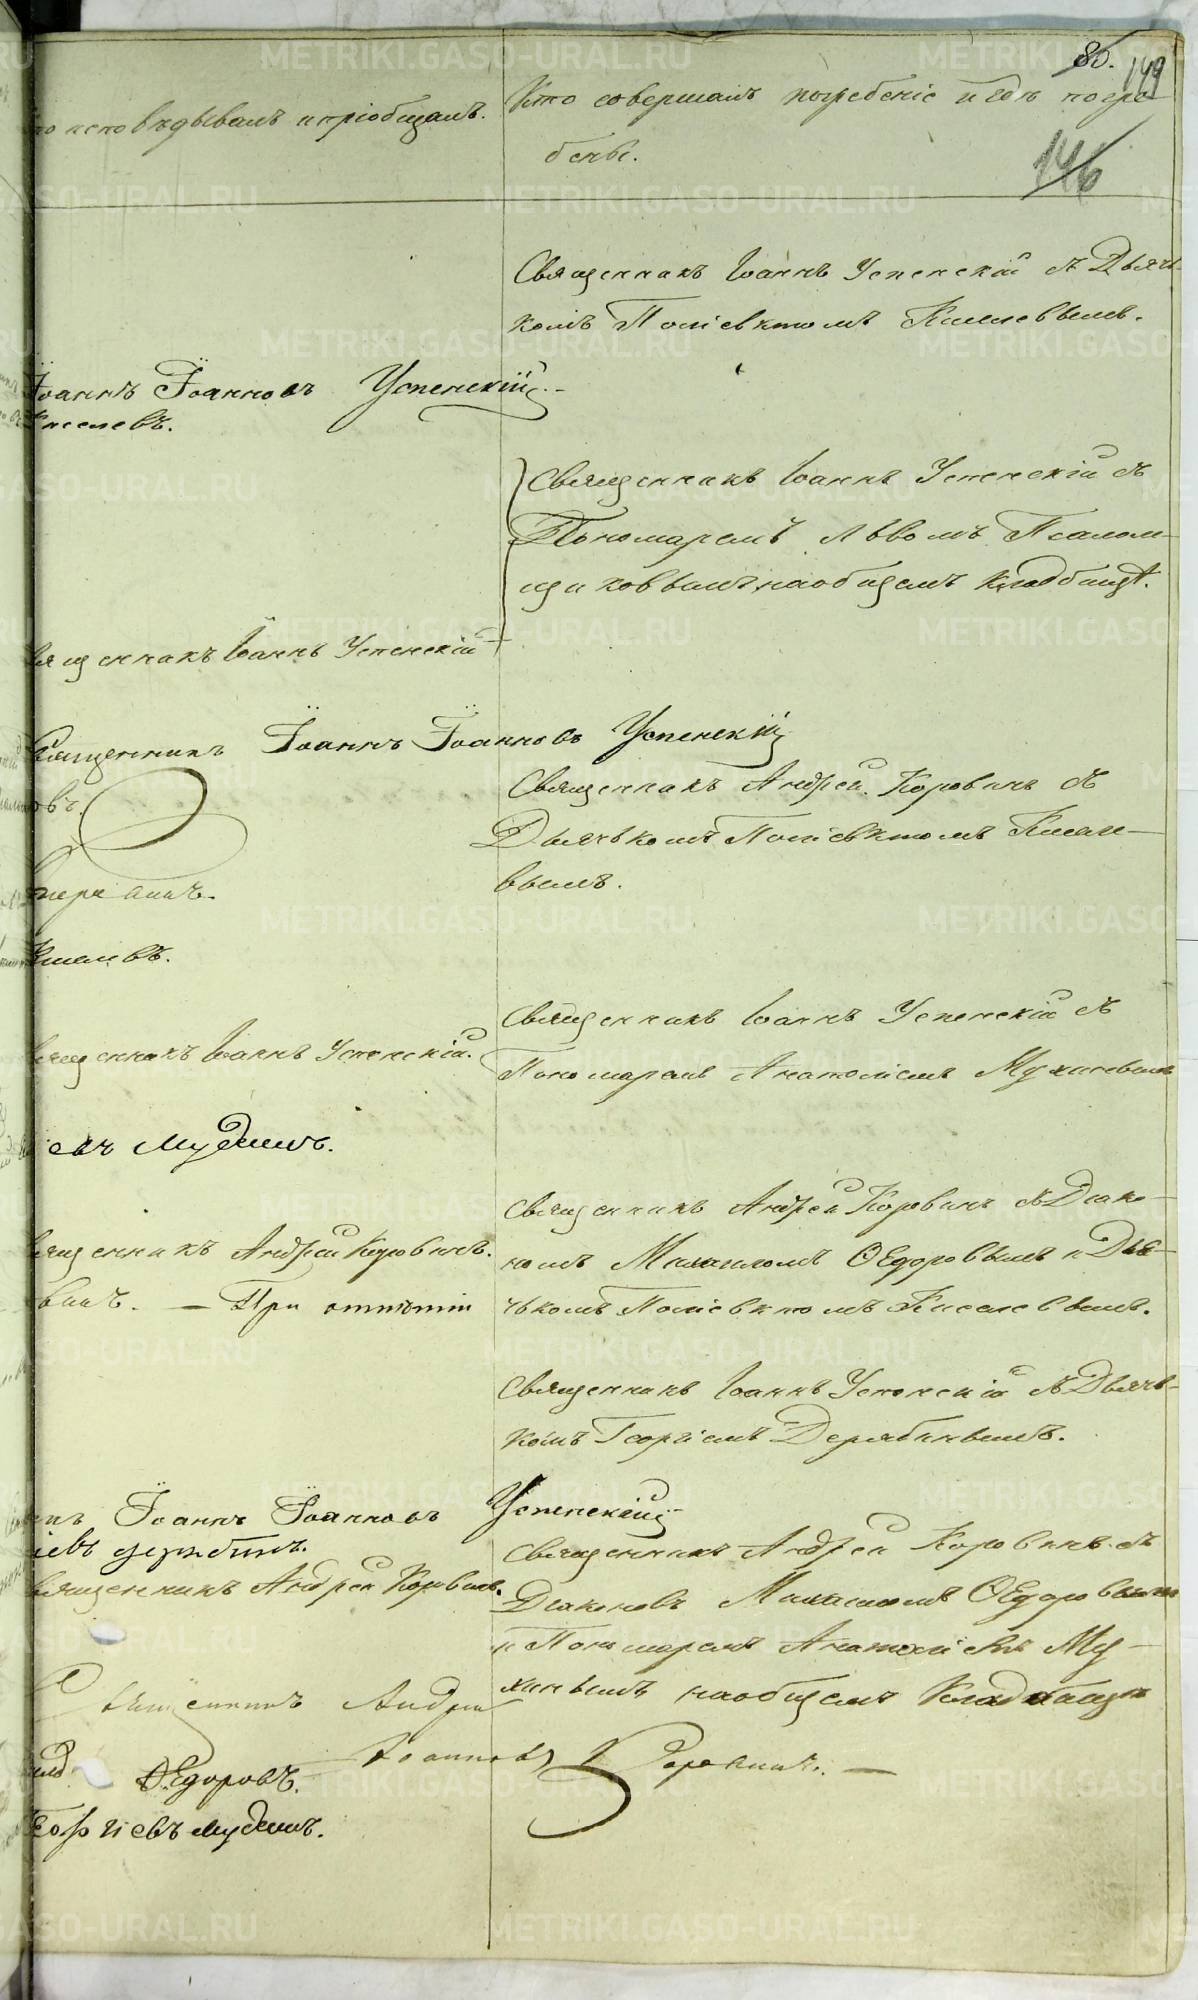 80.
149
кто исповѣдывалъ и пріобщалъ.
Кто совершалъ погребеніе и гдѣ погре-
бены.
146
Священникъ Іоаннъ Успенскій съ Дьяч-
комъ Поліевктомъ Киселевымъ.
Іоаннъ Іоанновъ Успенскій.
Киселевъ.
Священникъ Іоаннъ Успенскій съ
Пономаремъ Львомъ Псалом-
щиковымъ на общемъ кладбищѣ.
Священникъ Іоаннъ Успенскій
Священникъ Іоаннъ Іоанновъ Успенскій
овъ.
Священникъ Андрей Коровинъ съ
Дьячкомъ Поліевктомъ Кисле-
вымъ.
Священникъ Іоаннъ Успенскій съ
Священникъ Іоаннъ Успенскій.
Пономаремъ Анатоліемъ Мухинымъ
евъ Мудинъ.
Священникъ Андрей Коровинъ съ Діако-
Священникъ Андрей Коровинъ.
номъ Михаиломъ Ѳедоровымъ и Дья-
винъ. — При отпѣтіи
чькомъ Поліевктомъ Киселевымъ.
Священникъ Іоаннъ Успенскій съ Дьячь-
комъ Георгіемъ Дерябинымъ.
Іоаннъ Іоанновъ Успенскій
Священникъ Андрей Коровинъ съ
Священникъ Андрей Коровинъ.
Діакономъ Михаиломъ Ѳедоровымъ
и Пономаремъ Анатоліемъ Му-
хинымъ на общемъ Кладбищѣ
Священникъ Андрей
Іоанновъ Коровинъ. —
Ѳедоровъ.
Георгіевъ Мудинъ.
METRIKI.GASO-URAL.RU